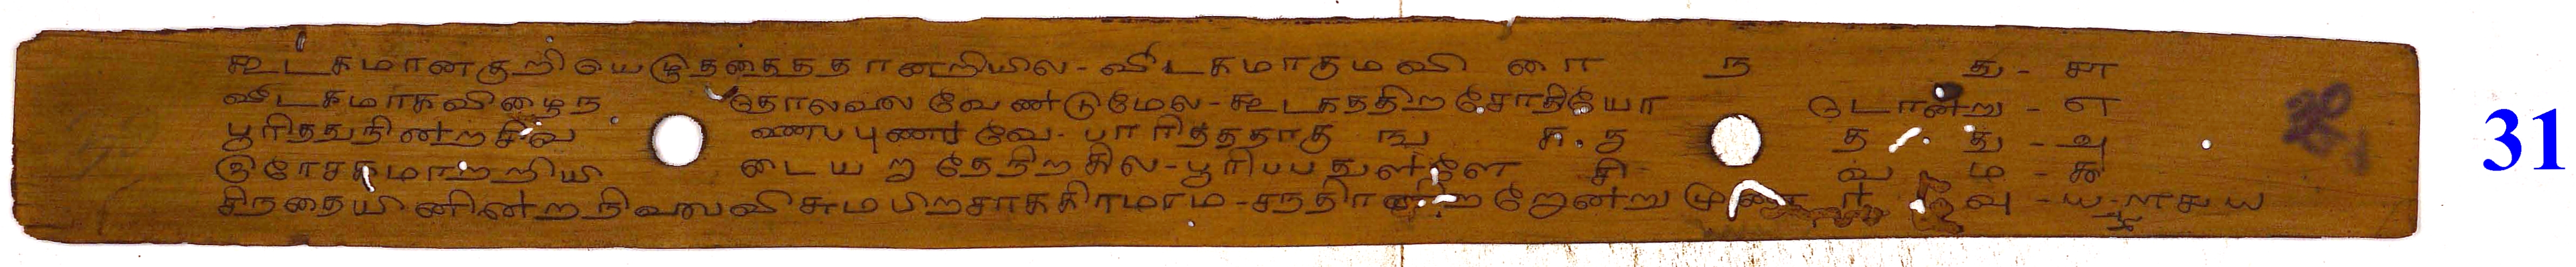 கூடகமானகுறியெழுததைததானறியில - வீடகமாகுமவி ளை ந து - சா
வீடகமாகவிழைந தோலவல வேண்டுமேல - கூடகததிற சோதியோ டொன்று - எ
பூரிதது நின்ற சிவ புணரவே - பாரித்ததாகு ங க த த து - அ
இரேசகமாறறியி டையறாதே நிறகில - பூரிபபதுள்ளே சி வ ம - கூ
சிநதையினின்ற நிலவிசுமபிறசாககிரமாம - சநதிரனிற றோன்று முண ர் வு - ய - ளசுய
31